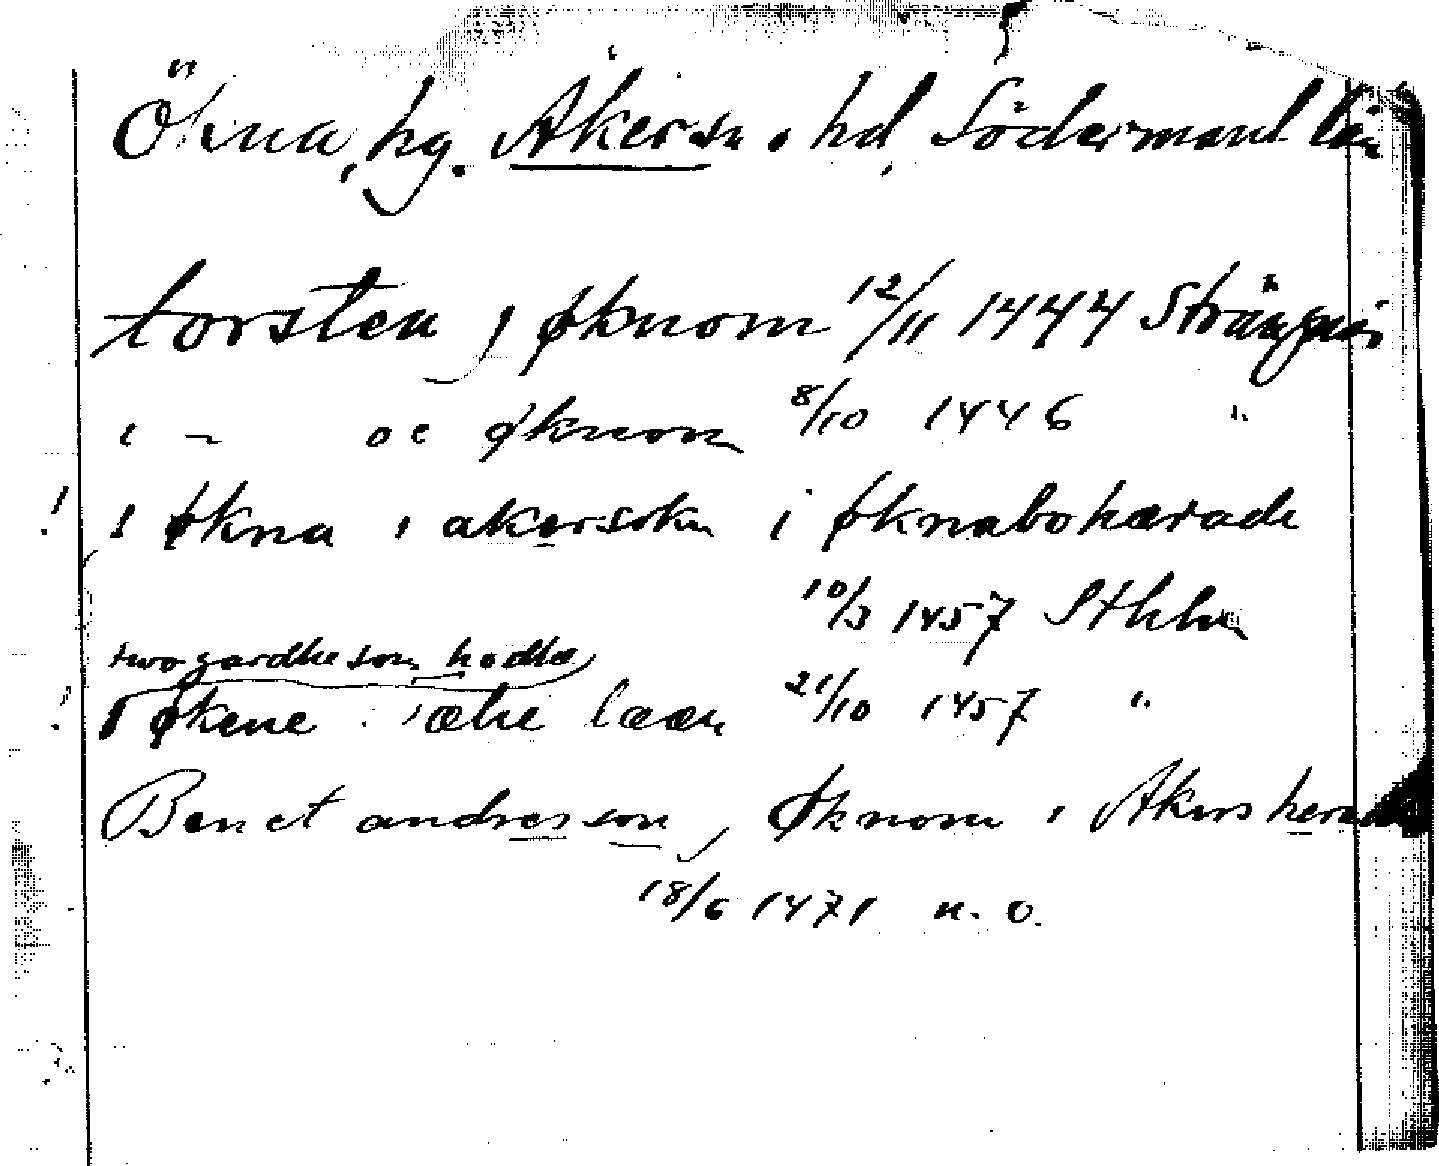 Ökna, hg. Åkers sn o hd, Södermanl län
torsten j øknom 12/11 1444 Strängnäs
i - oc øknom 8/10 1446 "
! J økna i akersokn i øknaboherade
10/3 1457 Sthlm
two gardhe som hadhæ
! J økene læn 21/10 1457 "
Benct andresson j Øknom i Akers herad
18/6 1471 u. o.